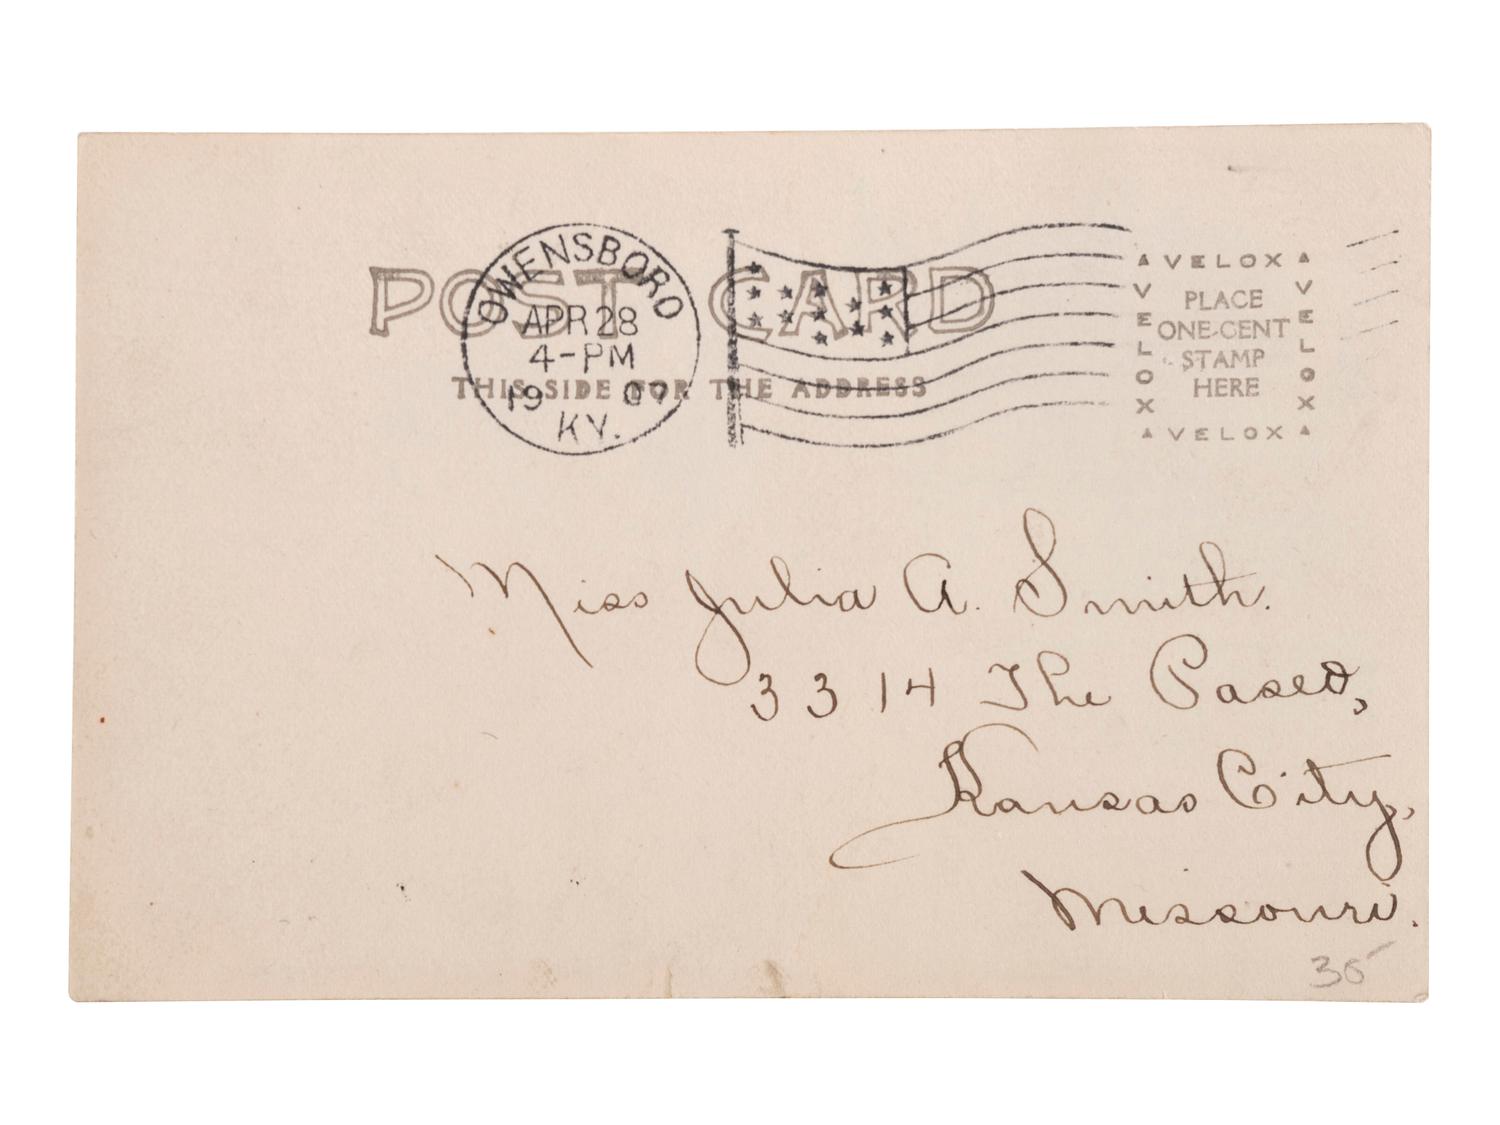 POST CARD
THIS SIDE FOR THE ADDRESS
OWENSBORO
APR 28
4-PM
1907
KY.
VELOX
VELOX
VELOX
VELOX
PLACE
ONE-CENT
STAMP
HERE
Miss Julia A. Smith.
3314 The Paseo,
Kansas City,
Missouri.
35